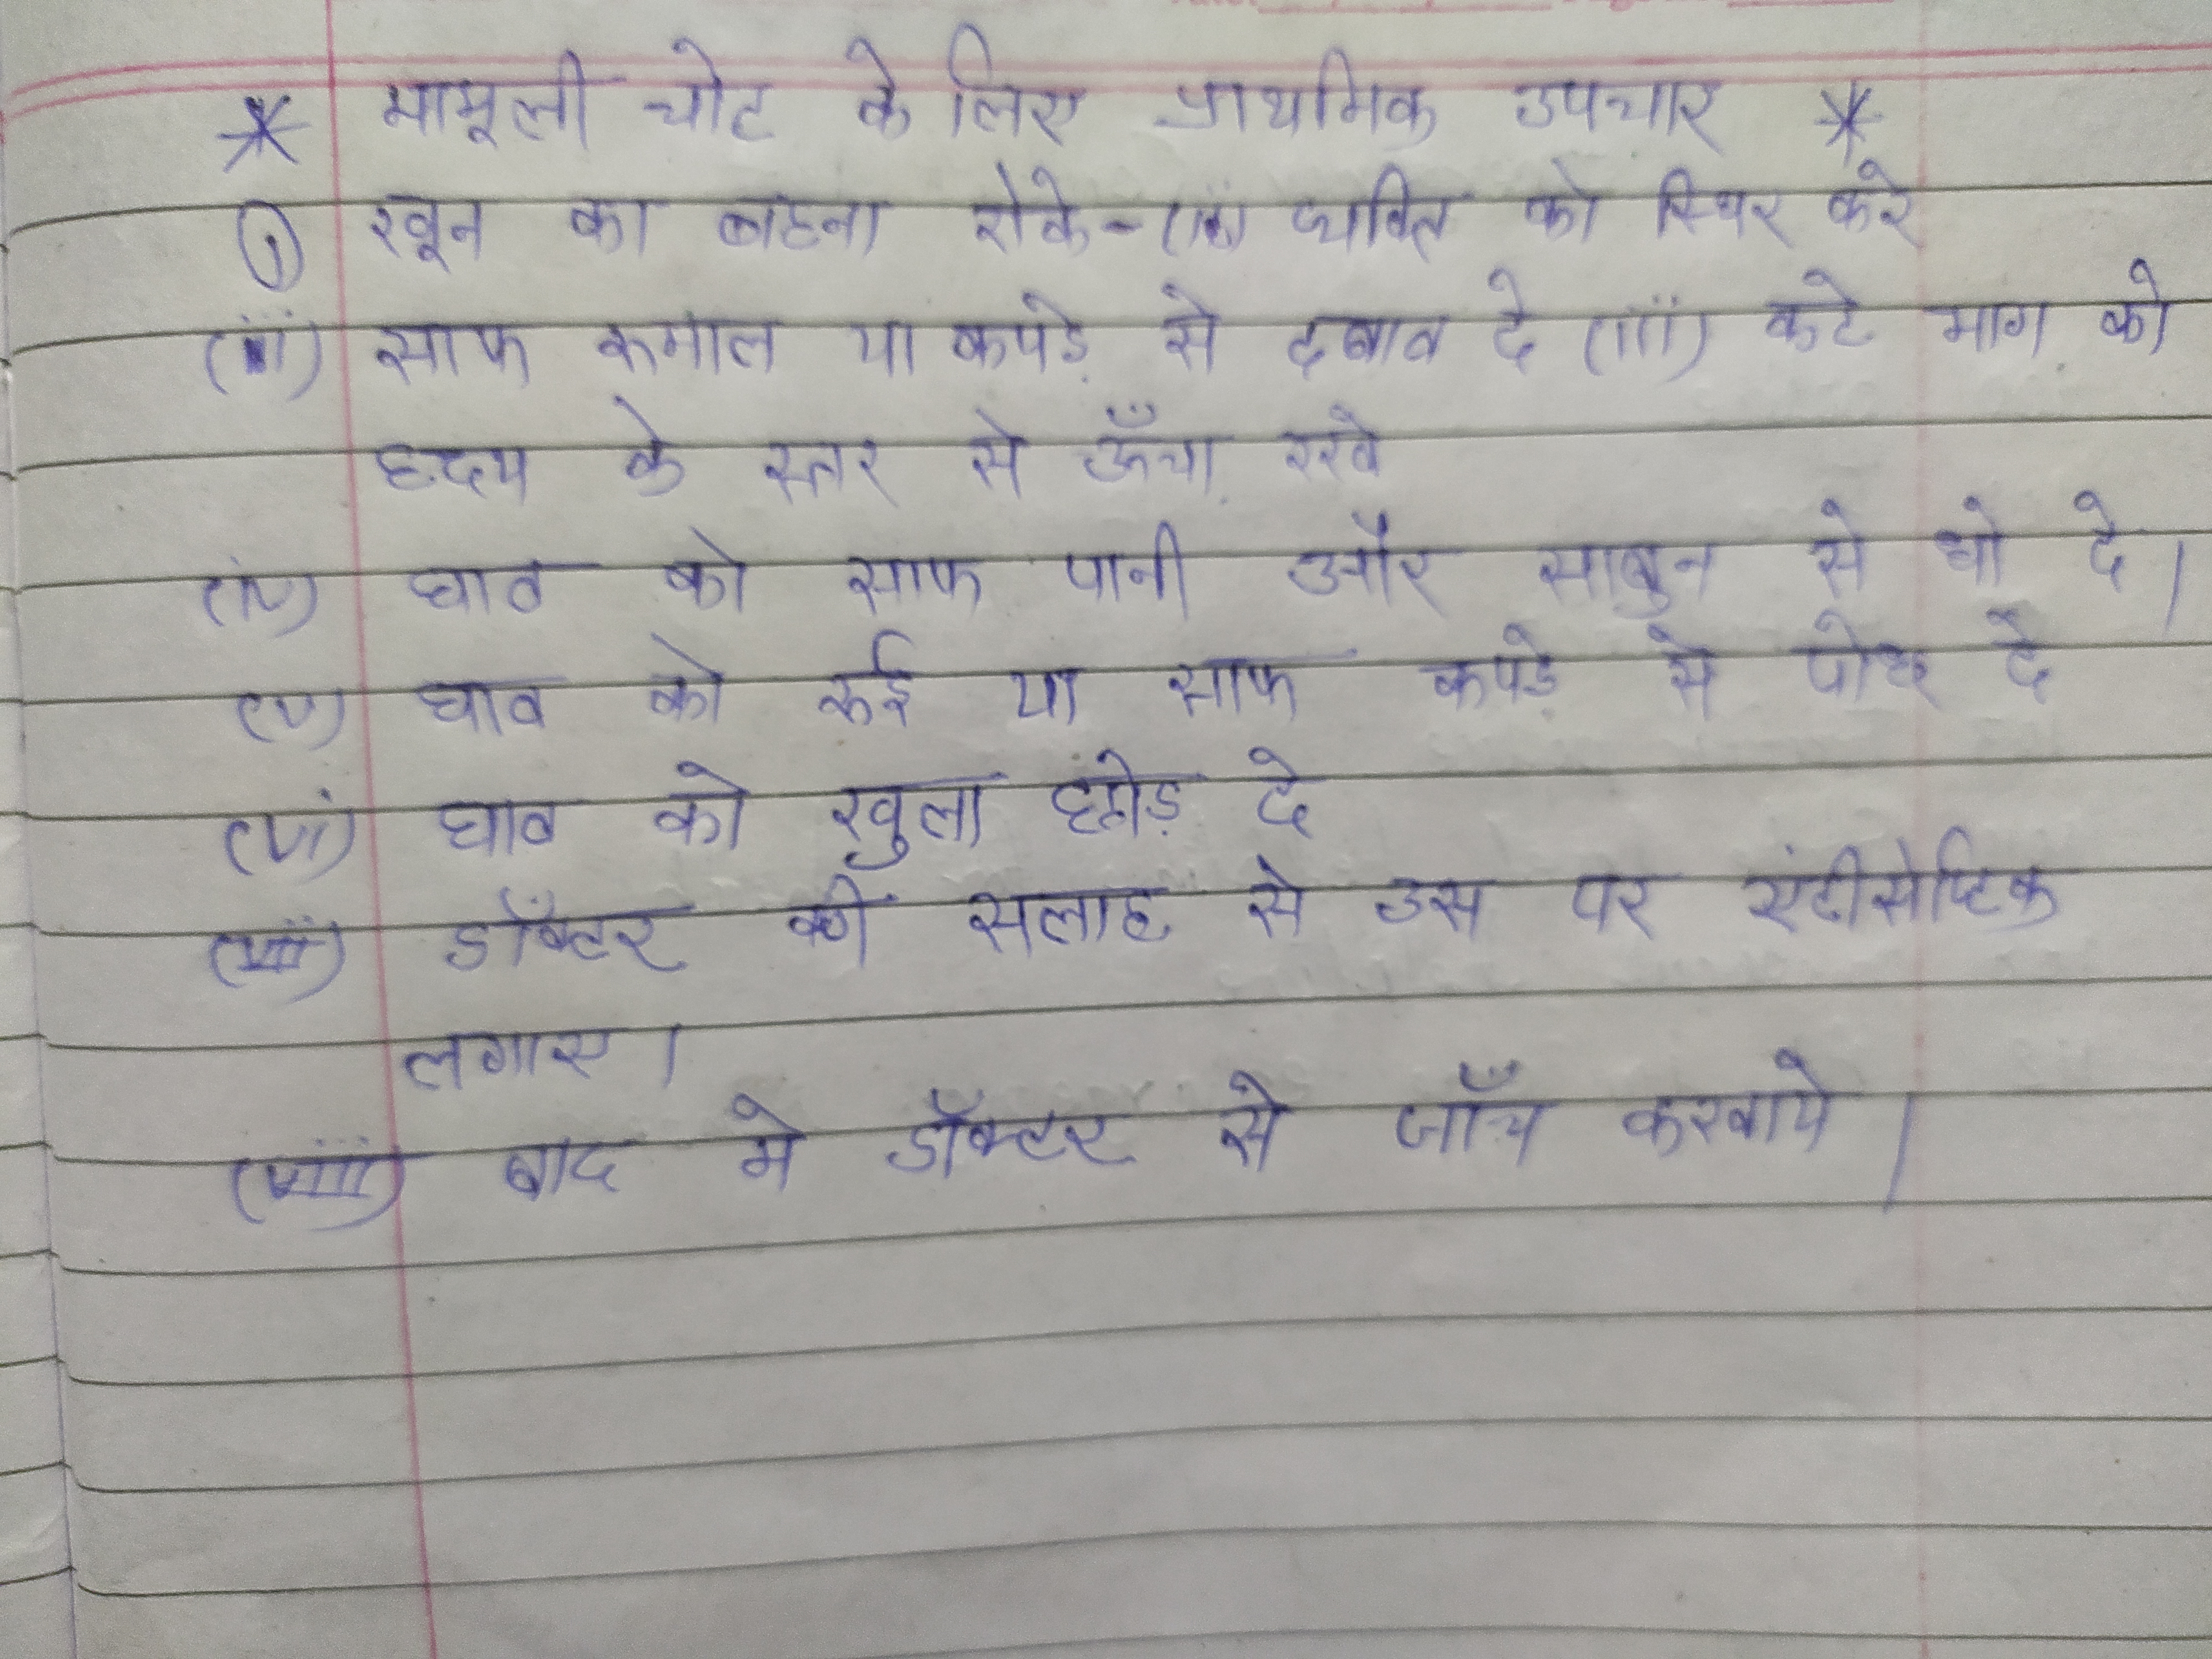 * मामूली चोट के लिए प्राथमिक उपचार *
① खून का बहना रोके - (i) व्यक्ति को स्थिर करे
(ii) साफ रूमाल या कपड़े से दबाव दे (iii) कटे भाग को
हृदय के स्तर से ऊँचा रखे
(iv) घाव को साफ पानी और साबुन से धो दे।
(v) घाव को रूई या साफ कपड़े से पोछ दे
(vi) घाव को खुला छोड़ दे
(vii) डॉक्टर की सलाह से उस पर एंटीसेप्टिक
लगाए।
(viii) बाद मे डॉक्टर से जाँच करवाये।